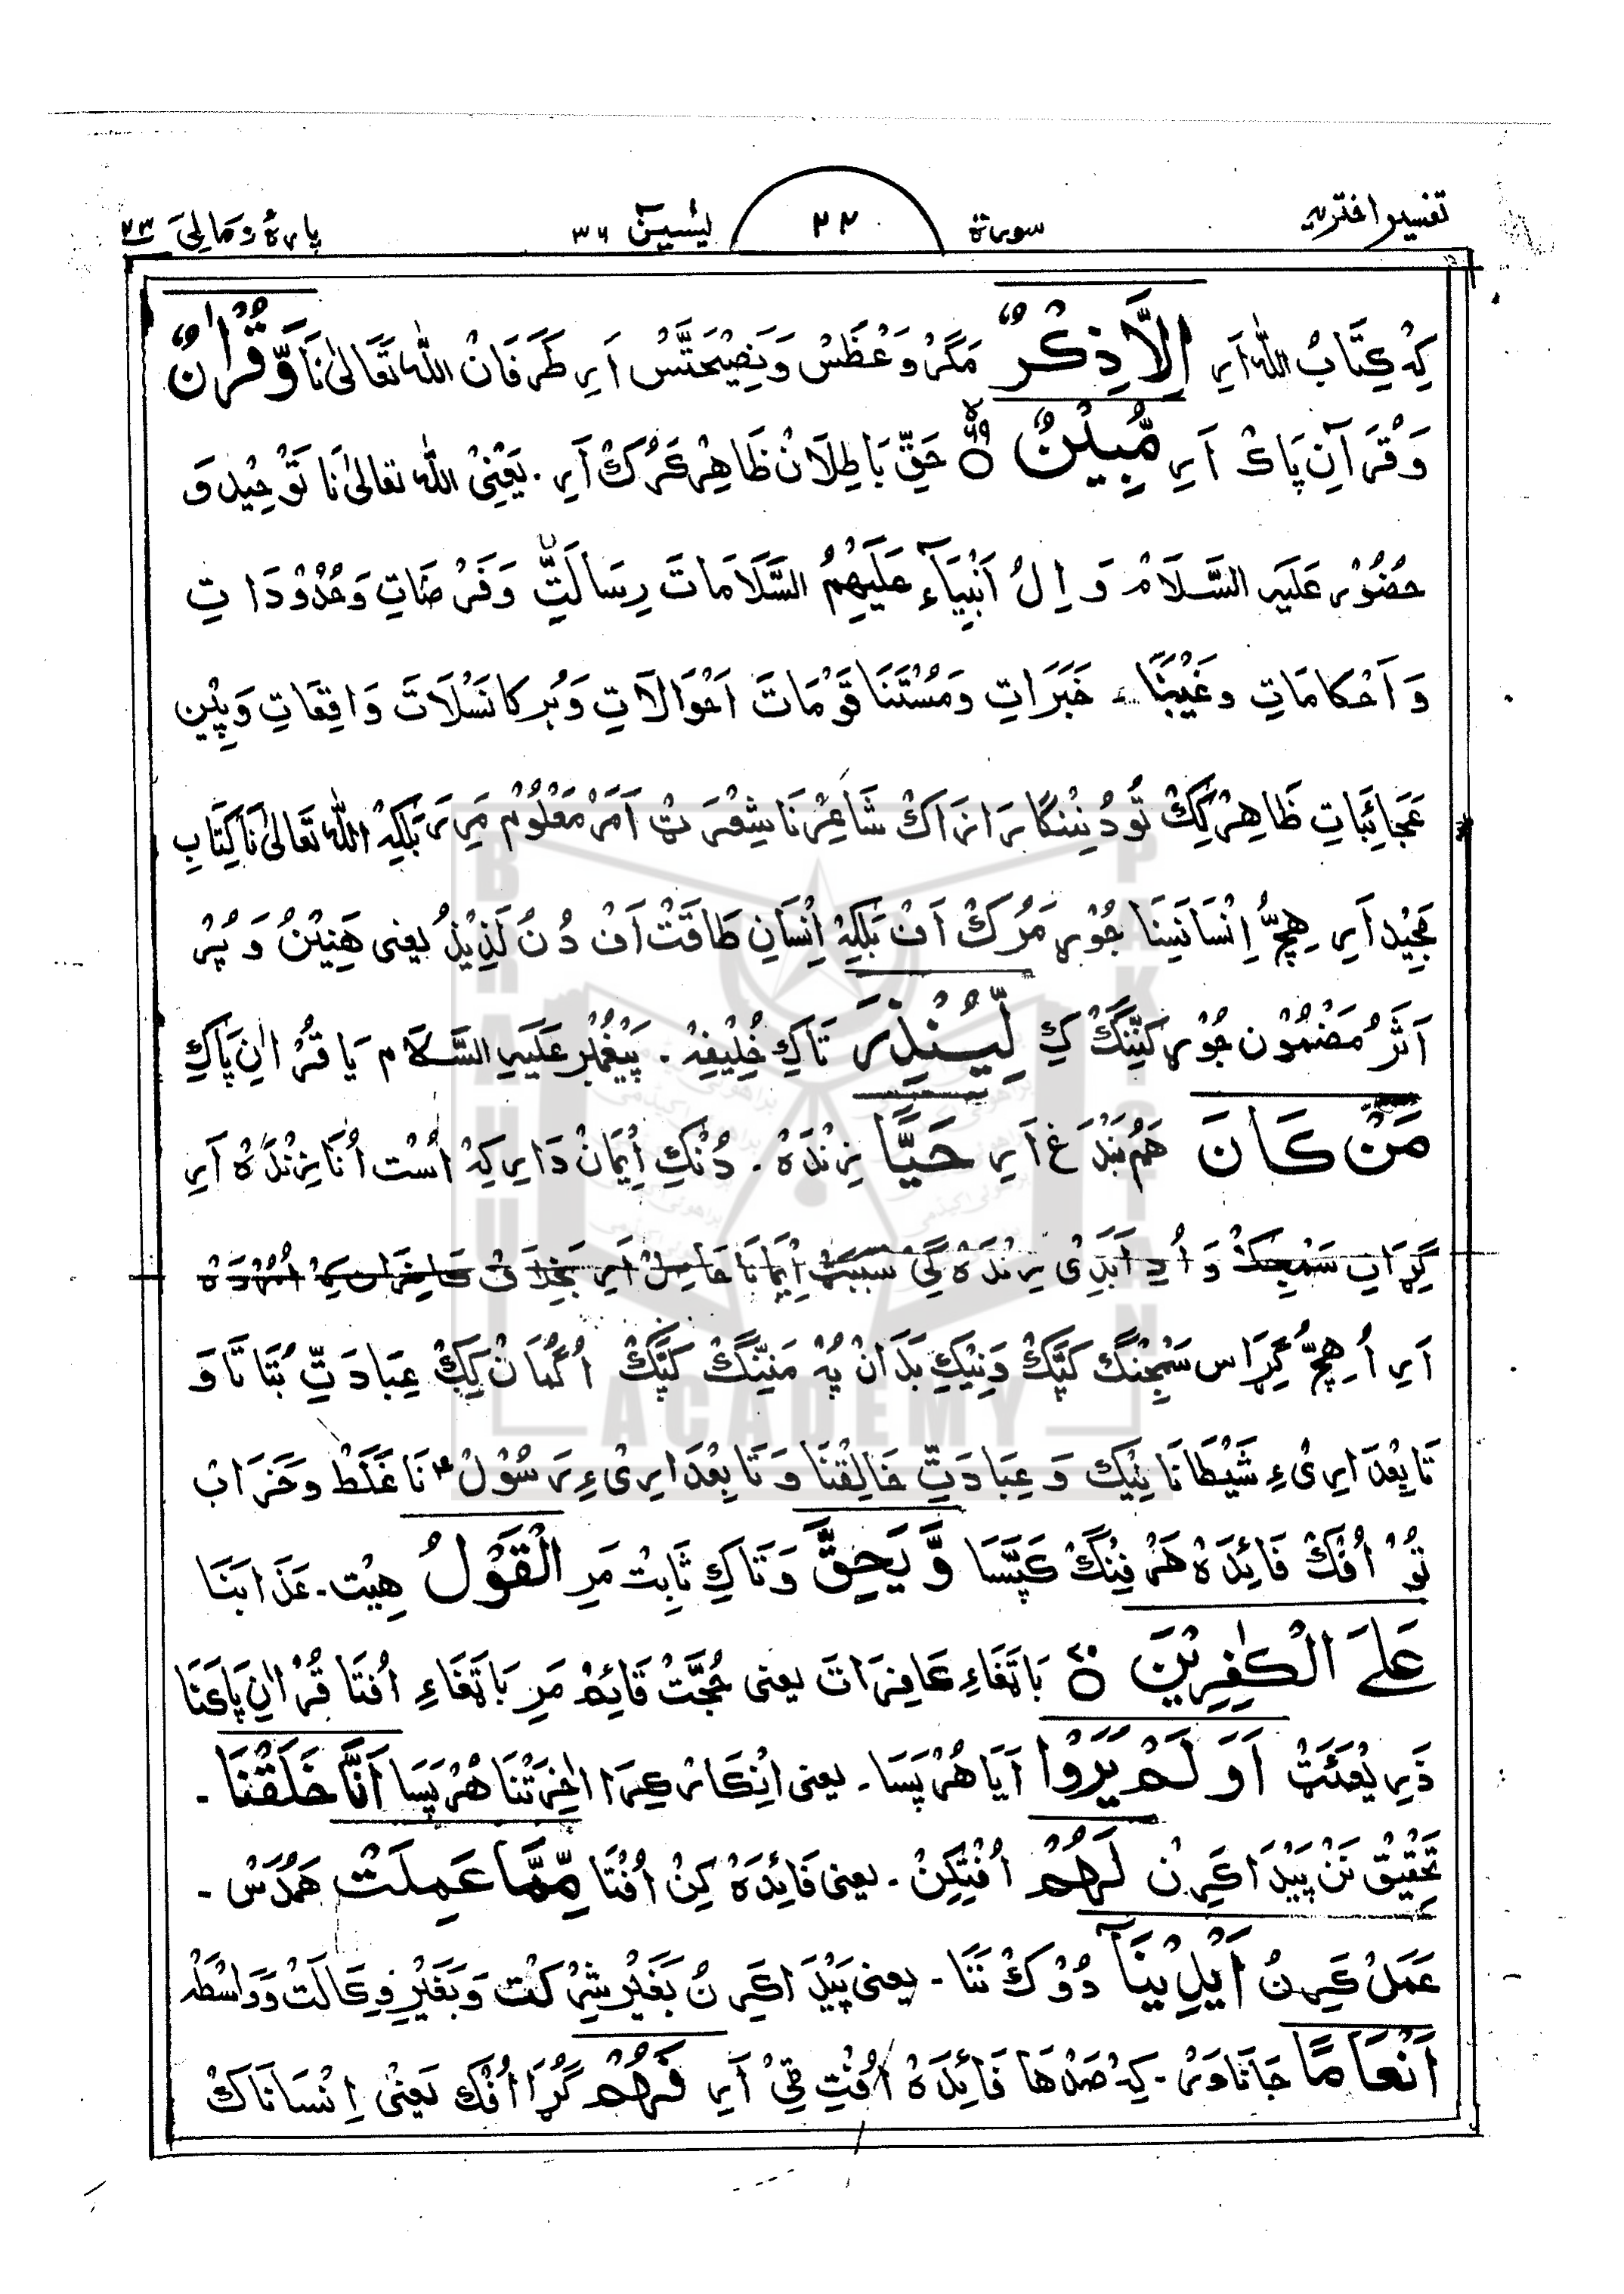 تفسیر اختریہ سورة ۲۲ یٰسین ۳۶ پارہ ومالی ۲۳
کِہ کِتَابُ اللہ اَرِ اِلَّا ذِکْرٌ مَگَرْ وَعْظَسْ وَنَصِیْحَتَّسْ اَرِ طَرَفَانْ اللہ تَعَالیٰ نَا وَّ قُرْاٰنٌ
وَ قُرَآنِ پَاکْ اَرِ مُّبِیْنٌ ۶۹ حَقِّ بَاطِلَانْ ظَاهِرْ کَرُکْ اَرِ. یَعْنِیْ اللہ تعالیٰ نَا تَوْحِیْد وَ
حضُوْر عَلَیہِ السَّلَامْ وَ اِلُ اَنْبِیَآءِ عَلَیْهِمُ السَّلَامَاتَ رِسَالَتِّ وَفَرْضَاتِ وَحُدُوْدَاتِ
وَ اَحْکَامَاتِ وغَیْبَنَّا خَبَرَاتِ وَمُسْتَنَا قَوْمَاتَ اَحْوَالَاتِ وَبُرکَا نَسْلَاتَ وَاقِعَاتِ وَپِیْن
عَجَائِبَاتِ ظَاهِرْ کِکْ تُو دُنْنگَا رَازَاکْ شَاعِرْ نَا شِعْرَٹْ اَمَرْ مَعْلُوْمْ مَرِرَ بَلکِہْ اللہ تَعَالیٰ نَا کِتَابِ
مَجِیْد اَرِ هِچُّ اِنْسَانَسِنَا جُوْر مَرُکْ اَفْ بَلکِہْ اِنْسَانِ طَاقَتْ اَفْ دُنُ لَذِیْذُ یعنی هَنِیْنُ وَ پُرْ
اَثَرُ مَضْمُوْن جُوْر کَنِّنگْ کِ لِّیُنْذِرَ تَاکِ خُلِیْفِہْ. پَیْغَمْبَرْ عَلَیہِ السَّلَام یَا قُرْاٰنِ پَاکِ
مَنْ کَانَ هَمُ بَنْدَغ اَرِ حَیًّا زِنْدَہْ. دُنْکِ اِیْمَانْ دَارِ کِہْ اُسْت اُنَا زِنْدَہْ اَرِ
گِڑَاتِ سَمْجِکْ وَ اُدِ اَبَدِیْ زِنْدَہْ گِیْ سَبَبَٹْ اِیْمَانَا حَاصِلْ اَرِ بَخِلَافْ کَافِرَان کِہْ اُمُرْدَہْ
اَرِ اُ هِچُّ گِڑَاس سَمْجِنْگْ کَپَّکْ وَنِیْکِ بَدَانْ پُہْ مَنِنِّگْ کَپَّکْ اُگُمَانْ کِکْ عِبَادَتِّ بُتَاتَا وَ
تَابِعْدَارِیْ ءِ شَیْطَانَا نِیْک وَ عِبَادَتِّ خَالِقْنَا وَ تَابِعْدَارِیْ ءِ رَسُوْلْ نَا غَلَطْ وَخَرَابْ
تُوْ اُفْکْ فَائِدَہْ هَرْفِنْگْ کَپَّسَا وَّ یَحِقَّ وَتَاکِ ثَابِتْ مَرِ الْقَوْلُ هِیْت. عَذَابَنَا
عَلَی الْکٰفِرِیْنَ ۷۰ بَاتَغَاءِ کَافِرَاتَ یعنی حُجَّتْ قَائِمْ مَرِ بَاتَغَاءِ اُفتَا قُرْاٰنِ پَاکنَا
ذَرِیْعَئَٹْ اَوَ لَمْ یَرَوْا آیَا هُرْپَسَا. یعنی اِنْکَارْ کِرَا اٰخِرَتْنَا هُرْپَسَا اَنَّا خَلَقْنَا.
تَحْقِیْق نَنْ پَیْدَا کَرِنْ لَهُمْ اُفْتِکِنْ. یعنی فَائِدَہْ کِنْ اُفْتَا مِّمَّا عَمِلَتْ هَمُدَسْ.
عَمَلْ کَرِنُ اَیْدِیْنَآ دُوْکْ نَنَا. یعنی پَیْدَا کَرِنُ بَغَیْر شِرکَتْ وَبَغَیْرِ وِکَالَتْ وَوَاسْطَہ
اَنْعَامًا جَانَاوَرْ. کِہْ صَدْهَا فَائِدَہْ اُفْتِ قِیْ اَرِ فَهُمْ گُڑَا اُفْکْ یَعْنِیْ اِنْسَانَاکْ
BRAHUI
ACADEMY
PAKISTAN